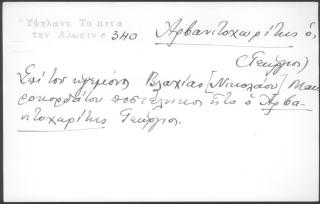 Ὑψηλαντ. Τα μετα
την Αλωσιν σ 340
Ἀρβανιτοχωρίτης ὁ,
(Γεώργιος)
Ἐπὶ τοῦ ἡγεμόνος Βλαχίας [Νικολάου] Μαυ
ροκορδάτου ποστέλνικος ἦτο ὁ Ἀρβα-
νιτοχαρίτης Γεώργιος.